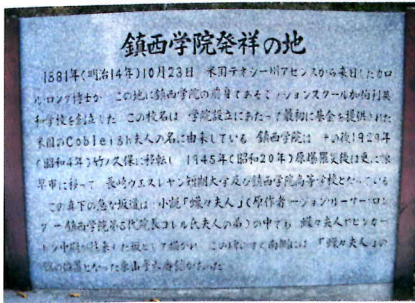 鎮西学院発祥の地
1881年(明治14年)10月23日 米国テネシー州アセンスから来日したカロ
ル・ロング博士が この地に鎮西学院の前身であるミッションスクール加伯利英
和学校を創立した この校名は 学院設立にあたって最初に基金を提供された
米国のCobleigh夫人の名に由来している 鎮西学院は その後1929年
(昭和4年)竹ノ久保に移転し 1945年(昭和20年)原爆罹災後は更に
早市に移って 長崎ウエスレヤン短期大学及び鎮西学院高等学校となっている
この真下の急な坂道は 小説「蝶々夫人」(原作者 ジョン・ルーサー・ロン
グ 鎮西学院第五代院長コレル氏夫人の弟)の中でも 蝶々夫人やピンカー
トン中尉が往来した坂として描かれ この すぐ南側には「蝶々夫人」の
の舞台となった東山手